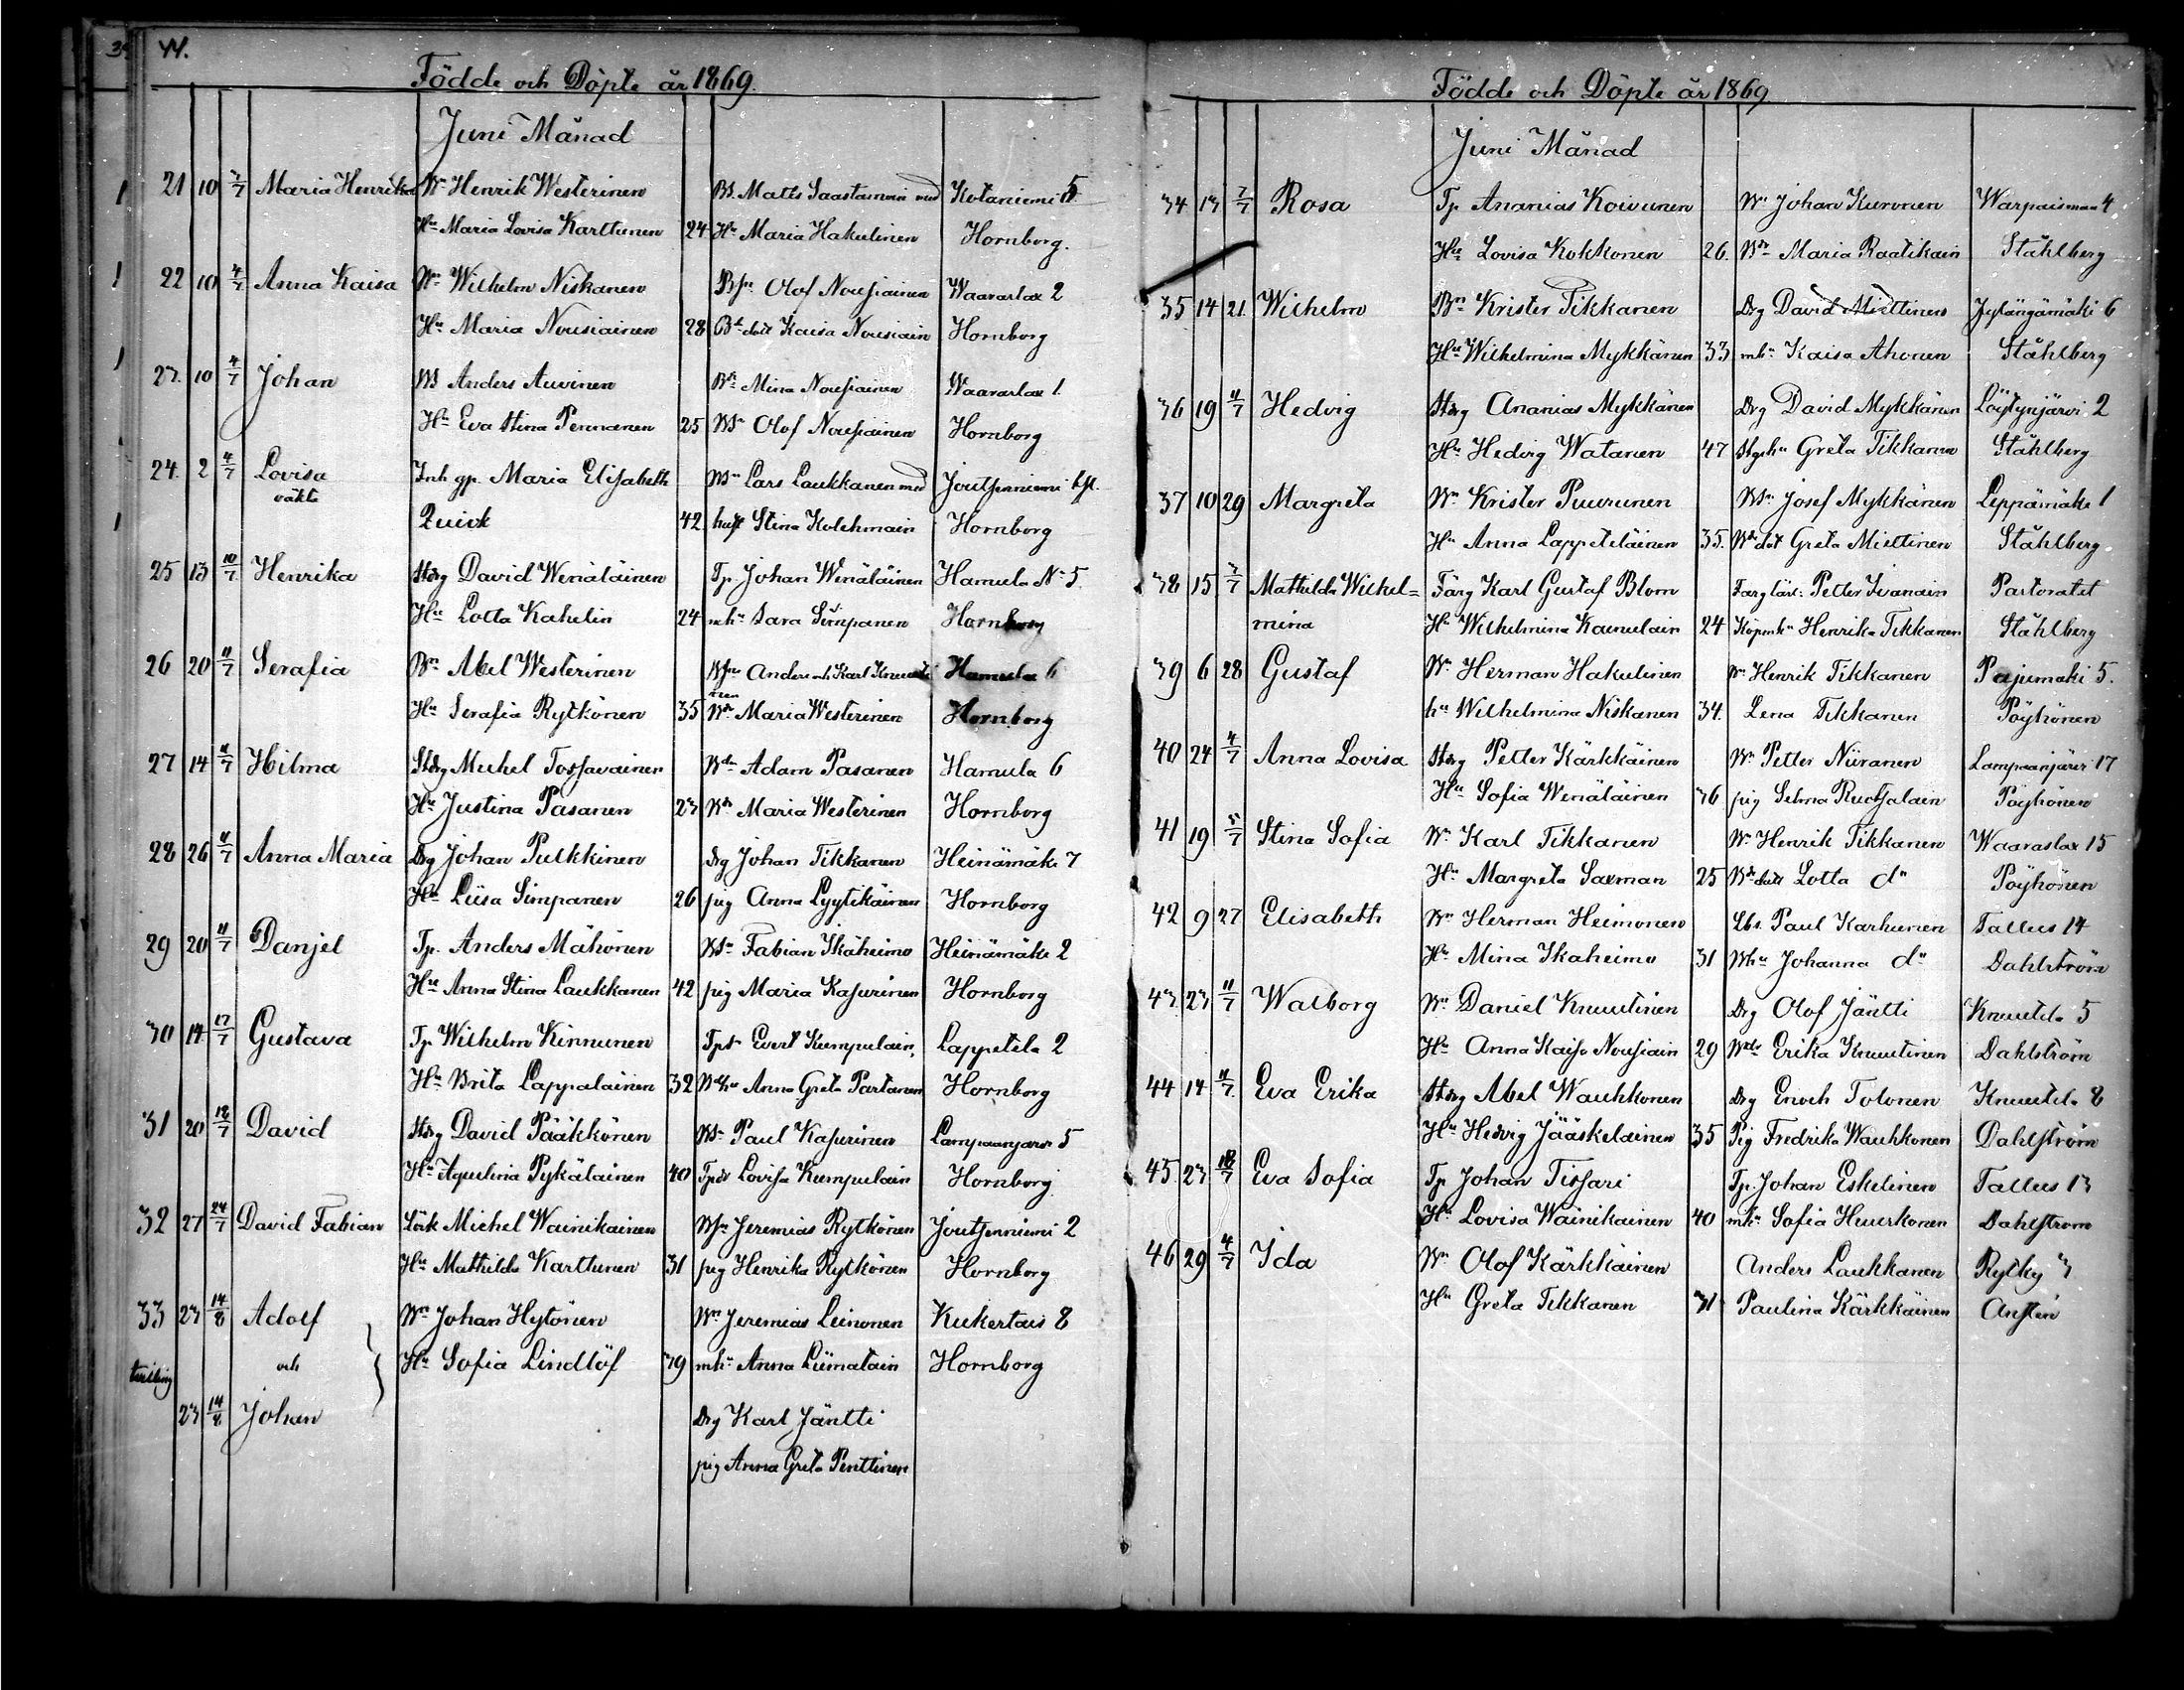 44.
Födde och Döpte år 1869.
Juni Månad
21 10 3/7 Maria Henrika Bn Henrik Westerinen BS. Matts Saastamoin med Kotaniemi 5
Hu Maria Lovisa Karttunen 24 Hu Maria Hakulinen Hornborg.
22 10 4/7 Anna Kaisa Bn Wilhelm Niskanen Olof Nousiainen Waaraslax 2
Hu Maria Nousiainen 28 Kaisa Nousiain Hornborg
23. 10 4/7 Johan BS Anders Auvinen Mina Nousiainen Waaraslax 1.
Hu Eva Stina Pennanen 25 Olof Nousiainen Hornborg
24. 2 4/7 Lovisa Inh gp. Maria Elisabeth Lars Laukkanen med Joutsenniemi
oäkta
Quick 42 hust Stina Kolehmain Hornborg
25 13 10/7 Henrika Stdrg David Wenäläinen Tp Johan Wenäläinen Hamula No 5.
Hu Lotta Kahelin 24 mhu Sara Simpanen Hornborg
26 20 11/7 Serafia Bn Abel Westerinen Anders och Karl Knuuti Hamula 6
nen
Hu Serafia Rytkönen 35 Maria Westerinen Hornborg
27 14 11/7 Hilma Stdrg Michel Tossavainen Adam Pasanen Hamula 6
Hu Justina Pasanen 23 Maria Westerinen Hornborg
28 26 11/7 Anna Maria Drg Johan Pulkkinen drg Johan Tikkanen Heinämäki 7
Hu Liisa Simpanen 26 pig Anna Lyytikäinen Hornborg
29 20 11/7 Danjel Tp. Anders Mähönen Fabian Ikäheimo Heinämäki 2
Hu Anna Stina Laukkanen 42 pig Maria Kasurinen Hornborg
30 14 17/7 Gustava Tp Wilhelm Kinnunen Evert Kumpulain, Lappetelä 2
Hu Brita Lappalainen 32 Anna Greta Partanen Hornborg
31 20 18/7 David Stdrg David Pääkkönen Paul Kasurinen Lampaanjärvi 5
Hu Aqulina Pykäläinen 40 Lovisa Kumpulain Hornborg
32 27 24/7 David Fabian Lösk Michel Wainikainen Jeremias Rytkönen Joutsenniemi 2
Hu Mathilda Karttunen 31 pig Henrika Rytkönen Hornborg
33 23 14/8 Adolf Bn Johan Hytönen Bn Jeremias Leinonen Kukertais 8
och Hu Sofia Lindlöf 39 mhu Anna Liimatain Hornborg
tvilling
23 14/8 Johan drg Karl Jäntti
pig Anna Greta Penttinen
Födde och Döpte år 1869
Juni Månad
34 13 7/7 Rosa Tp Ananias Koivunen Bn Johan Kuronen 4
Hu Lovisa Kokkonen 26. Maria Raatikain Ståhlberg
35 14 21 Wilhelm Bn Krister Tikkanen Drg David Miettinen 6
Hu Wilhelmina Mykkänen 33 mhu Kaisa Ahonen Ståhlberg
36 19 11/7 Hedvig Stdrg Ananias Mykkänen Drg David Mykkänen Löytynjärvi 2
Hu Hedvig Watanen 47 Greta Tikkanen Ståhlberg
37 10 29 Margreta Bn Krister Puurunen Josef Mykkänen Leppämäki 1
Hu Anna Lappeteläinen 35. Greta Miettinen Ståhlberg.
38 15 3/7 Mathilda Wilhel= Färg Karl Gustaf Blom Petter Pastoratet
mina Hu Wilhelmina Kaenulain 24 Henrika Tikkanen Ståhlberg
39 6 28 Gustaf Bn Herman Hakulinen Bn Henrik Tikkanen Pajumäki 5.
hu Wilhelmina Niskanen 34. Lena Tikkanen Pöyhönen
40 24 4/7 Anna Lovisa Stdrg Petter Kärkkäinen Bn Petter Niiranen Lampaanjärvi 17
Hu Sofia Wenäläinen 36 pig Selma Ruotsalain Pöyhönen
41 19 5/7 Stina Sofia Bn Karl Tikkanen Bn Henrik Tikkanen Waaraslax 15
Hu Margreta Saxman 25 Lotta do Pöyhönen
42 9 27 Elisabeth Bn Herman Heimonen Paul Karhunen Tallus 14
Hu Mina Ikäheimo 31 Bhu Johanna do Dahlström
43. 23 11/7 Walborg Bn Daniel Knuutinen Drg Olof Jäntti Knuutila 5
Hu Anna Kaisa Nousiain 29 Erika Knuutinen Dahlström
44 14 11/7 Eva Erika Stdrg Abel Wauhkonen drg Enoch Tolonen Knuutila 8
Hu Hedvig Jääskelainen 35 Pig Fredrika Wauhkonen Dahlström
45. 23 18/7 Eva Sofia Tp Johan Tissari Tp. Johan Eskelinen Tallus 13
Hu Lovisa Wainikainen 40 mhu Sofia Huuskonen Dahlström
46 29 4/7 Ida Bn Olof Kärkkäinen Anders Laukkanen Rytky 3
Hu Greta Tikkanen 31 Paulina Kärkkäinen Anstén